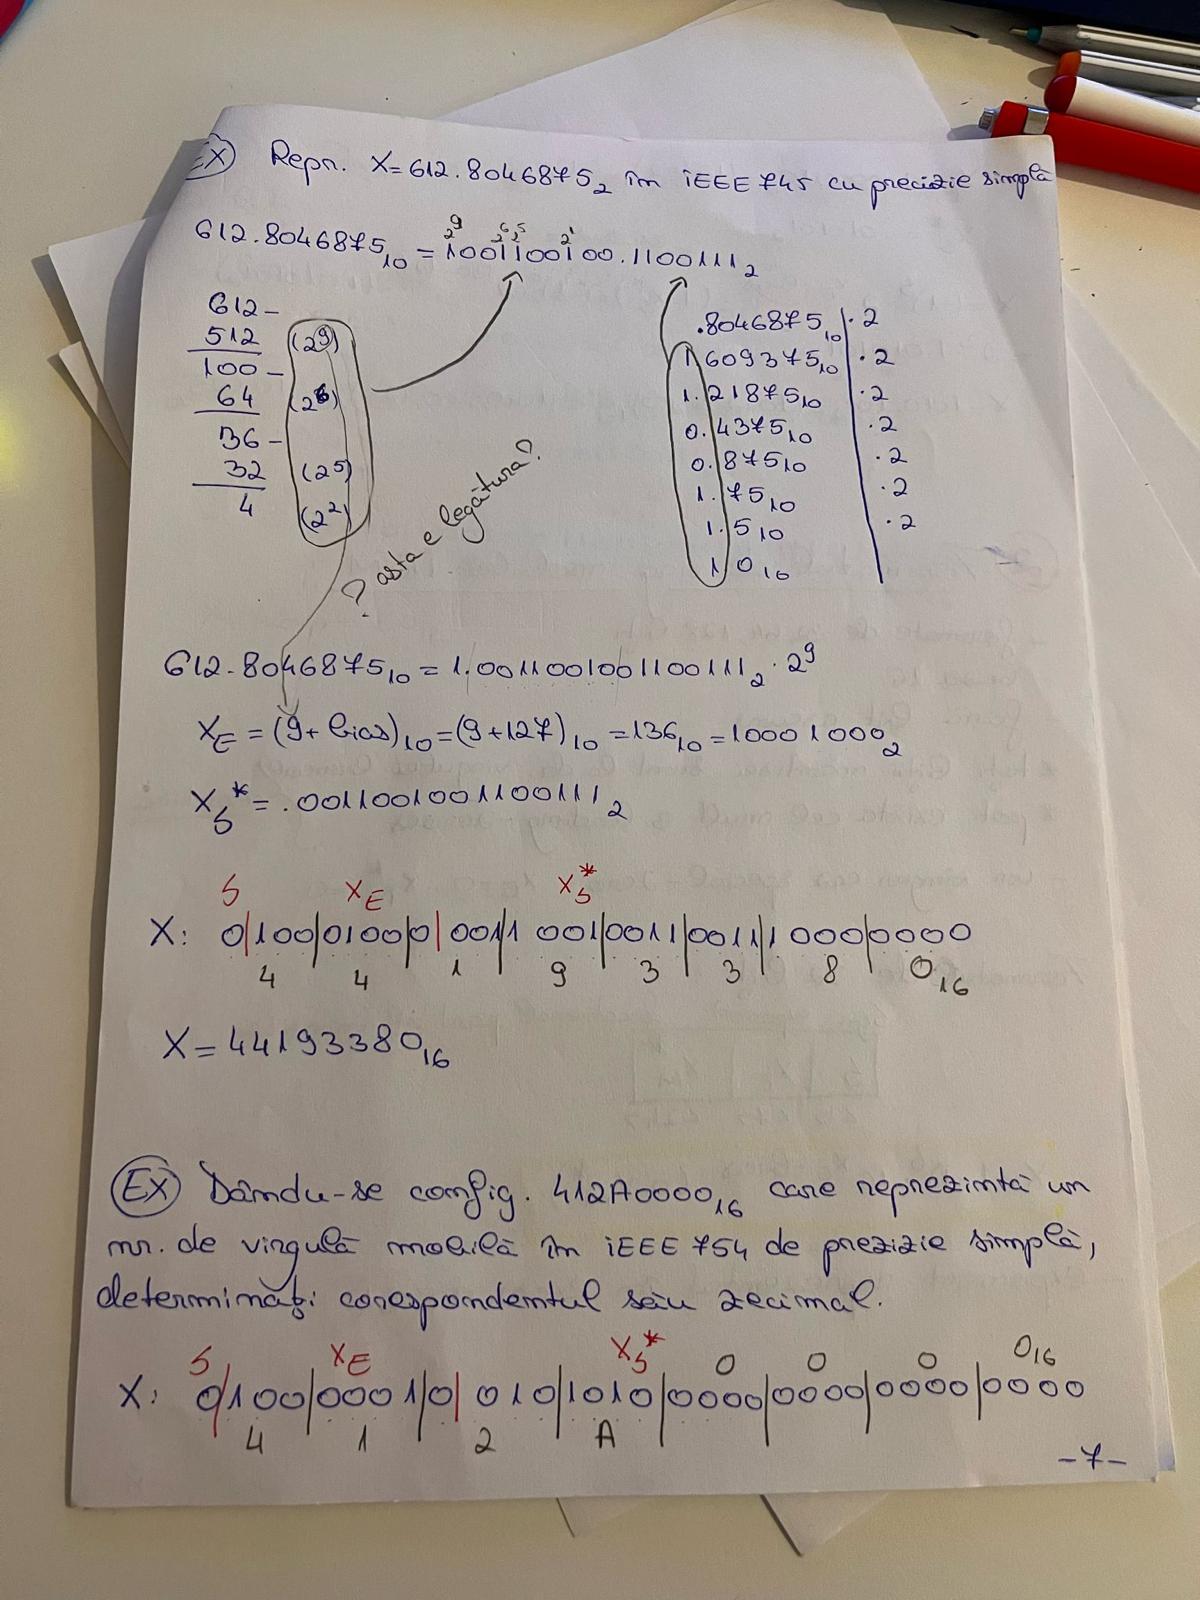 EX Repr. X=612.8046875₂ în iEEE 745 cu precizie simplă
2⁹ 2⁶ 2⁵ 2¹
612.8046875₁₀ = 1001100100.1100111₂
612 -
512 (2⁹)
100 -
64 (2⁶)
36 -
32 (2⁵)
4 (2²)
? asta e legătura?
.8046875₁₀ | ·2
1.609375₁₀ | ·2
1.21875₁₀ | ·2
0.4375₁₀ | ·2
0.875₁₀ | ·2
1.75₁₀ | ·2
1.5₁₀ | ·2
1.0₁₆
612.8046875₁₀ = 1.0011001001100111₂ · 2⁹
X_E = (9+bias)₁₀ = (9+127)₁₀ = 136₁₀ = 10001000₂
X_S* = .0011001001100111₂
S X_E X_S*
X: 0|100|0100|0|0011|1001|0011|0011|1000|0000
4 4 1 9 3 3 8 0₁₆
X = 44193380₁₆
EX Dându-se config. 412A0000₁₆ care reprezintă un
nr. de virgulă mobilă în iEEE 754 de prezizie simplă,
determinați corespondentul său zecimal.
S X_E X_S* 0 0 0 0₁₆
X: 0|100|0001|0|010|1010|0000|0000|0000|0000
4 1 2 A
-7-